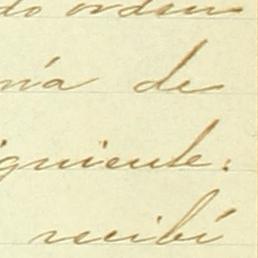 do orden
nía de
iguiente:
recibí